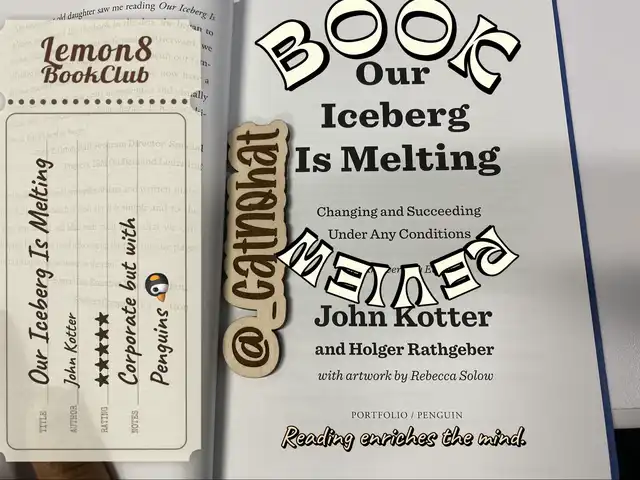 Lemon8
BookClub
TITLE Our Iceberg Is Melting
AUTHOR John Kotter
RATING ★★★★★
NOTES Corporate but with
Penguins 🐧
daughter saw me reading Our Iceberg Is
@_catnohat
BOOK
Our
Iceberg
Is Melting
Changing and Succeeding
Under Any Conditions
REVIEW
John Kotter
and Holger Rathgeber
with artwork by Rebecca Solow
PORTFOLIO / PENGUIN
Reading enriches the mind.